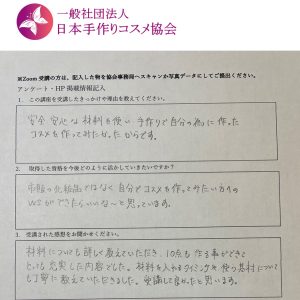 一般社団法人
日本手作りコスメ協会
※Zoom受講の方は、記入した物を協会事務局へスキャンか写真データにしてご提出ください。
アンケート・HP掲載情報記入
1 この講座を受講したきっかけや理由を教えてください。
安全安心な材料を使い手作りで自分の為に作った
コスメを作ってみたかったからです。
2. 取得した資格を今後どのように活かしていきたいですか?
市販の化粧品ではなく自分でコスメを作ってみたい方々の
WSができたらいいな〜と思っています。
3. 受講された感想をお聞かせください。
材料についても詳しく教えていただき、10点も作る事ができて
とっても充実した内容でした。材料を入れるタイミングや、使う基材について
も丁寧に教えていただきました。受講して良かったと思います。